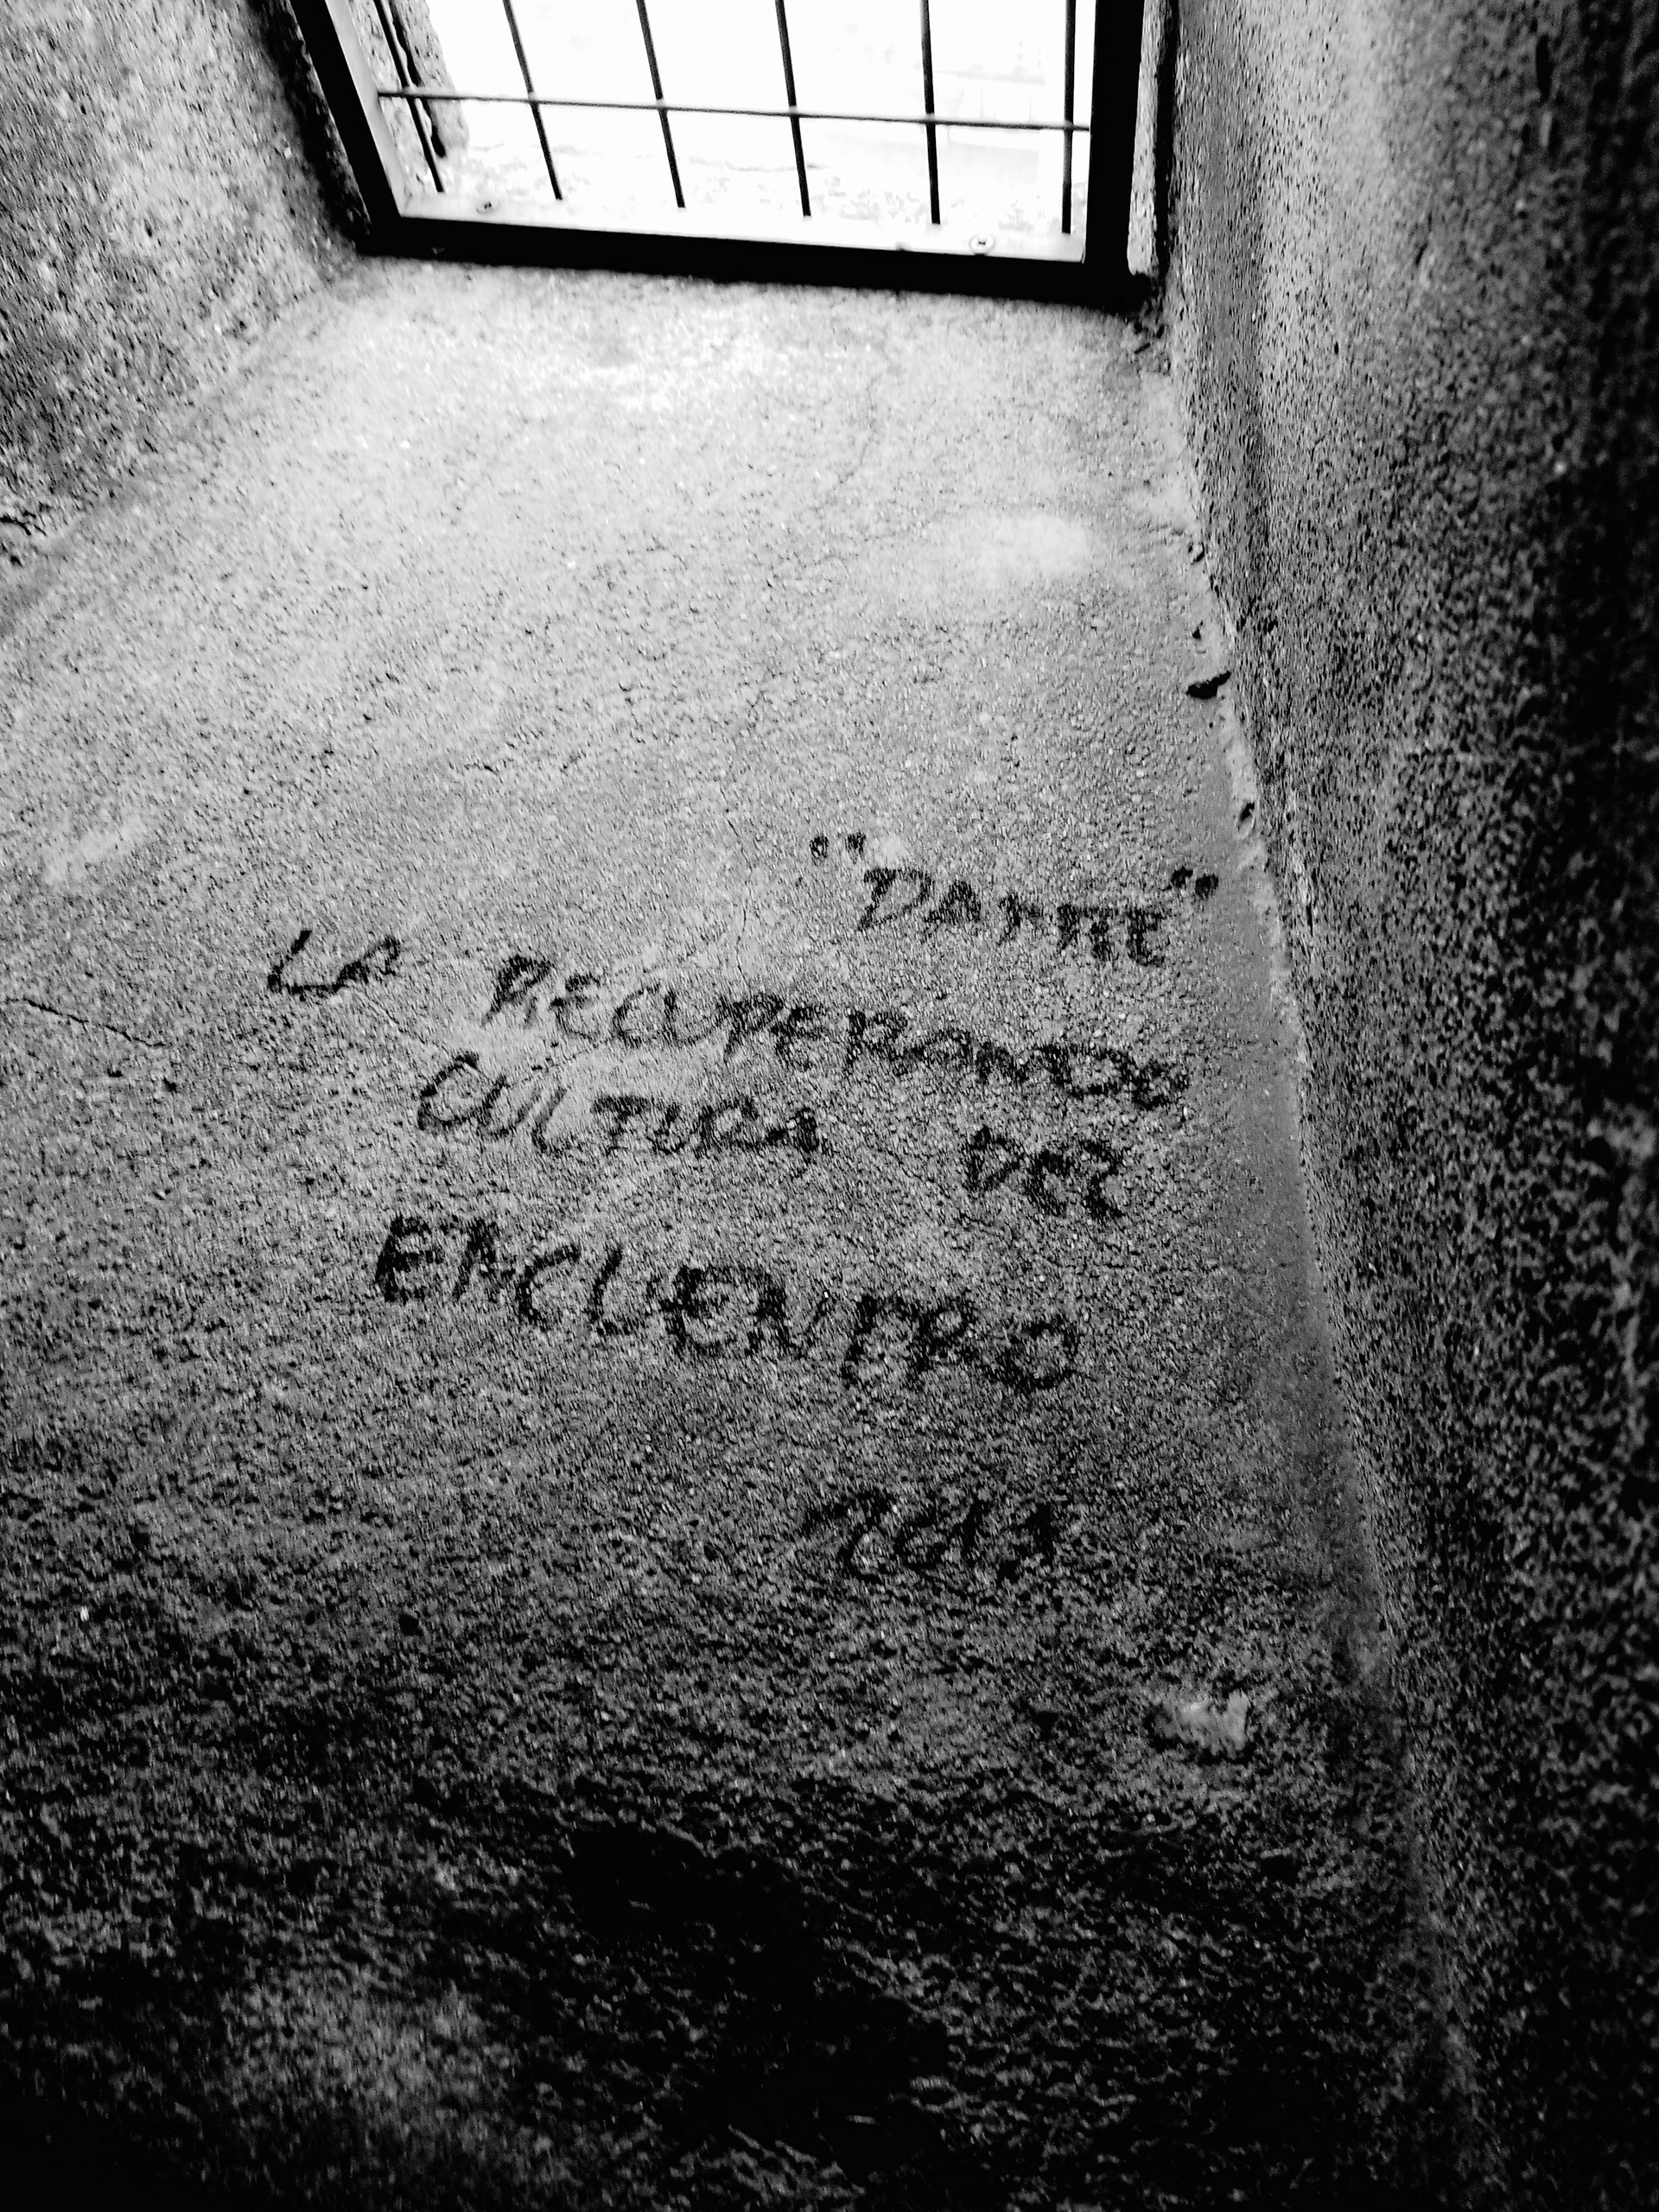 "DANTE"
LA RECUPERANDO
CULTURA DEL
ENCUENTRO